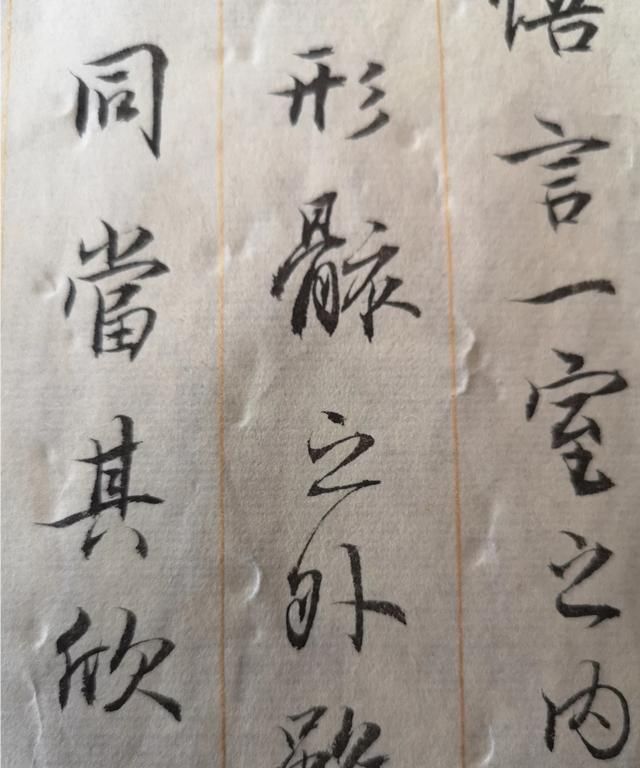 悟言一室之内
形骸之外雖
同當其欣